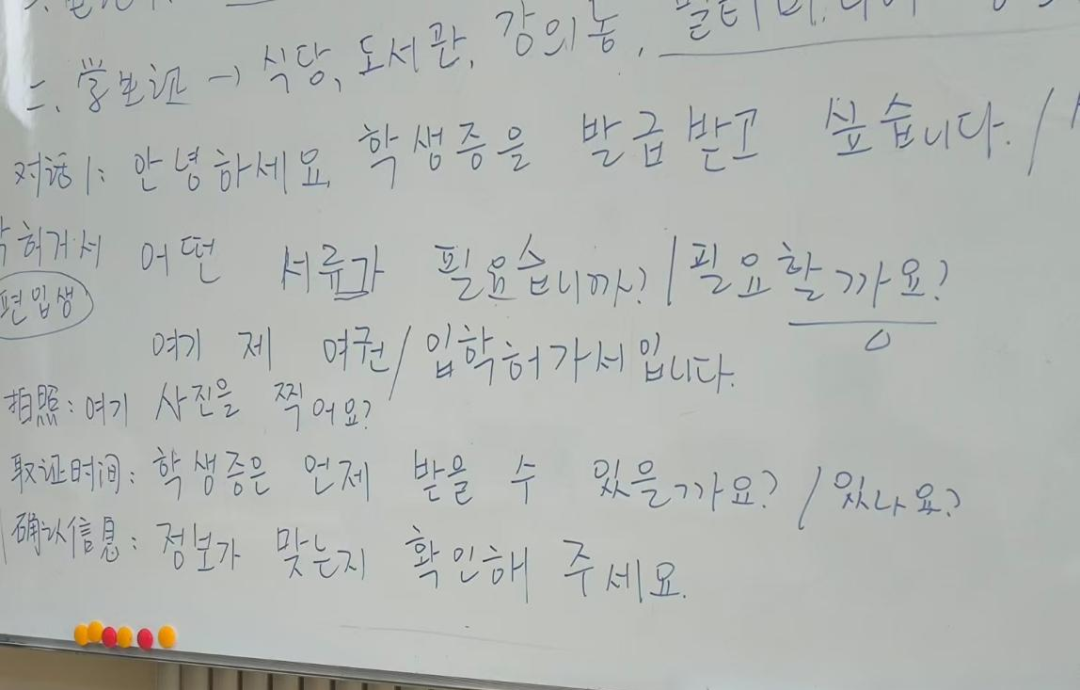 二、学生证 → 식당, 도서관, 강의동,
对话1: 안녕하세요, 학생증을 발급받고 싶습니다. /
허가서 어떤 서류가 필요습니까? / 필요할까요?
편입생
여기 제 여권/입학허가서입니다.
拍照: 여기 사진을 찍어요?
取证时间: 학생증은 언제 받을 수 있을까요? / 있나요?
确认信息: 정보가 맞는지 확인해 주세요.